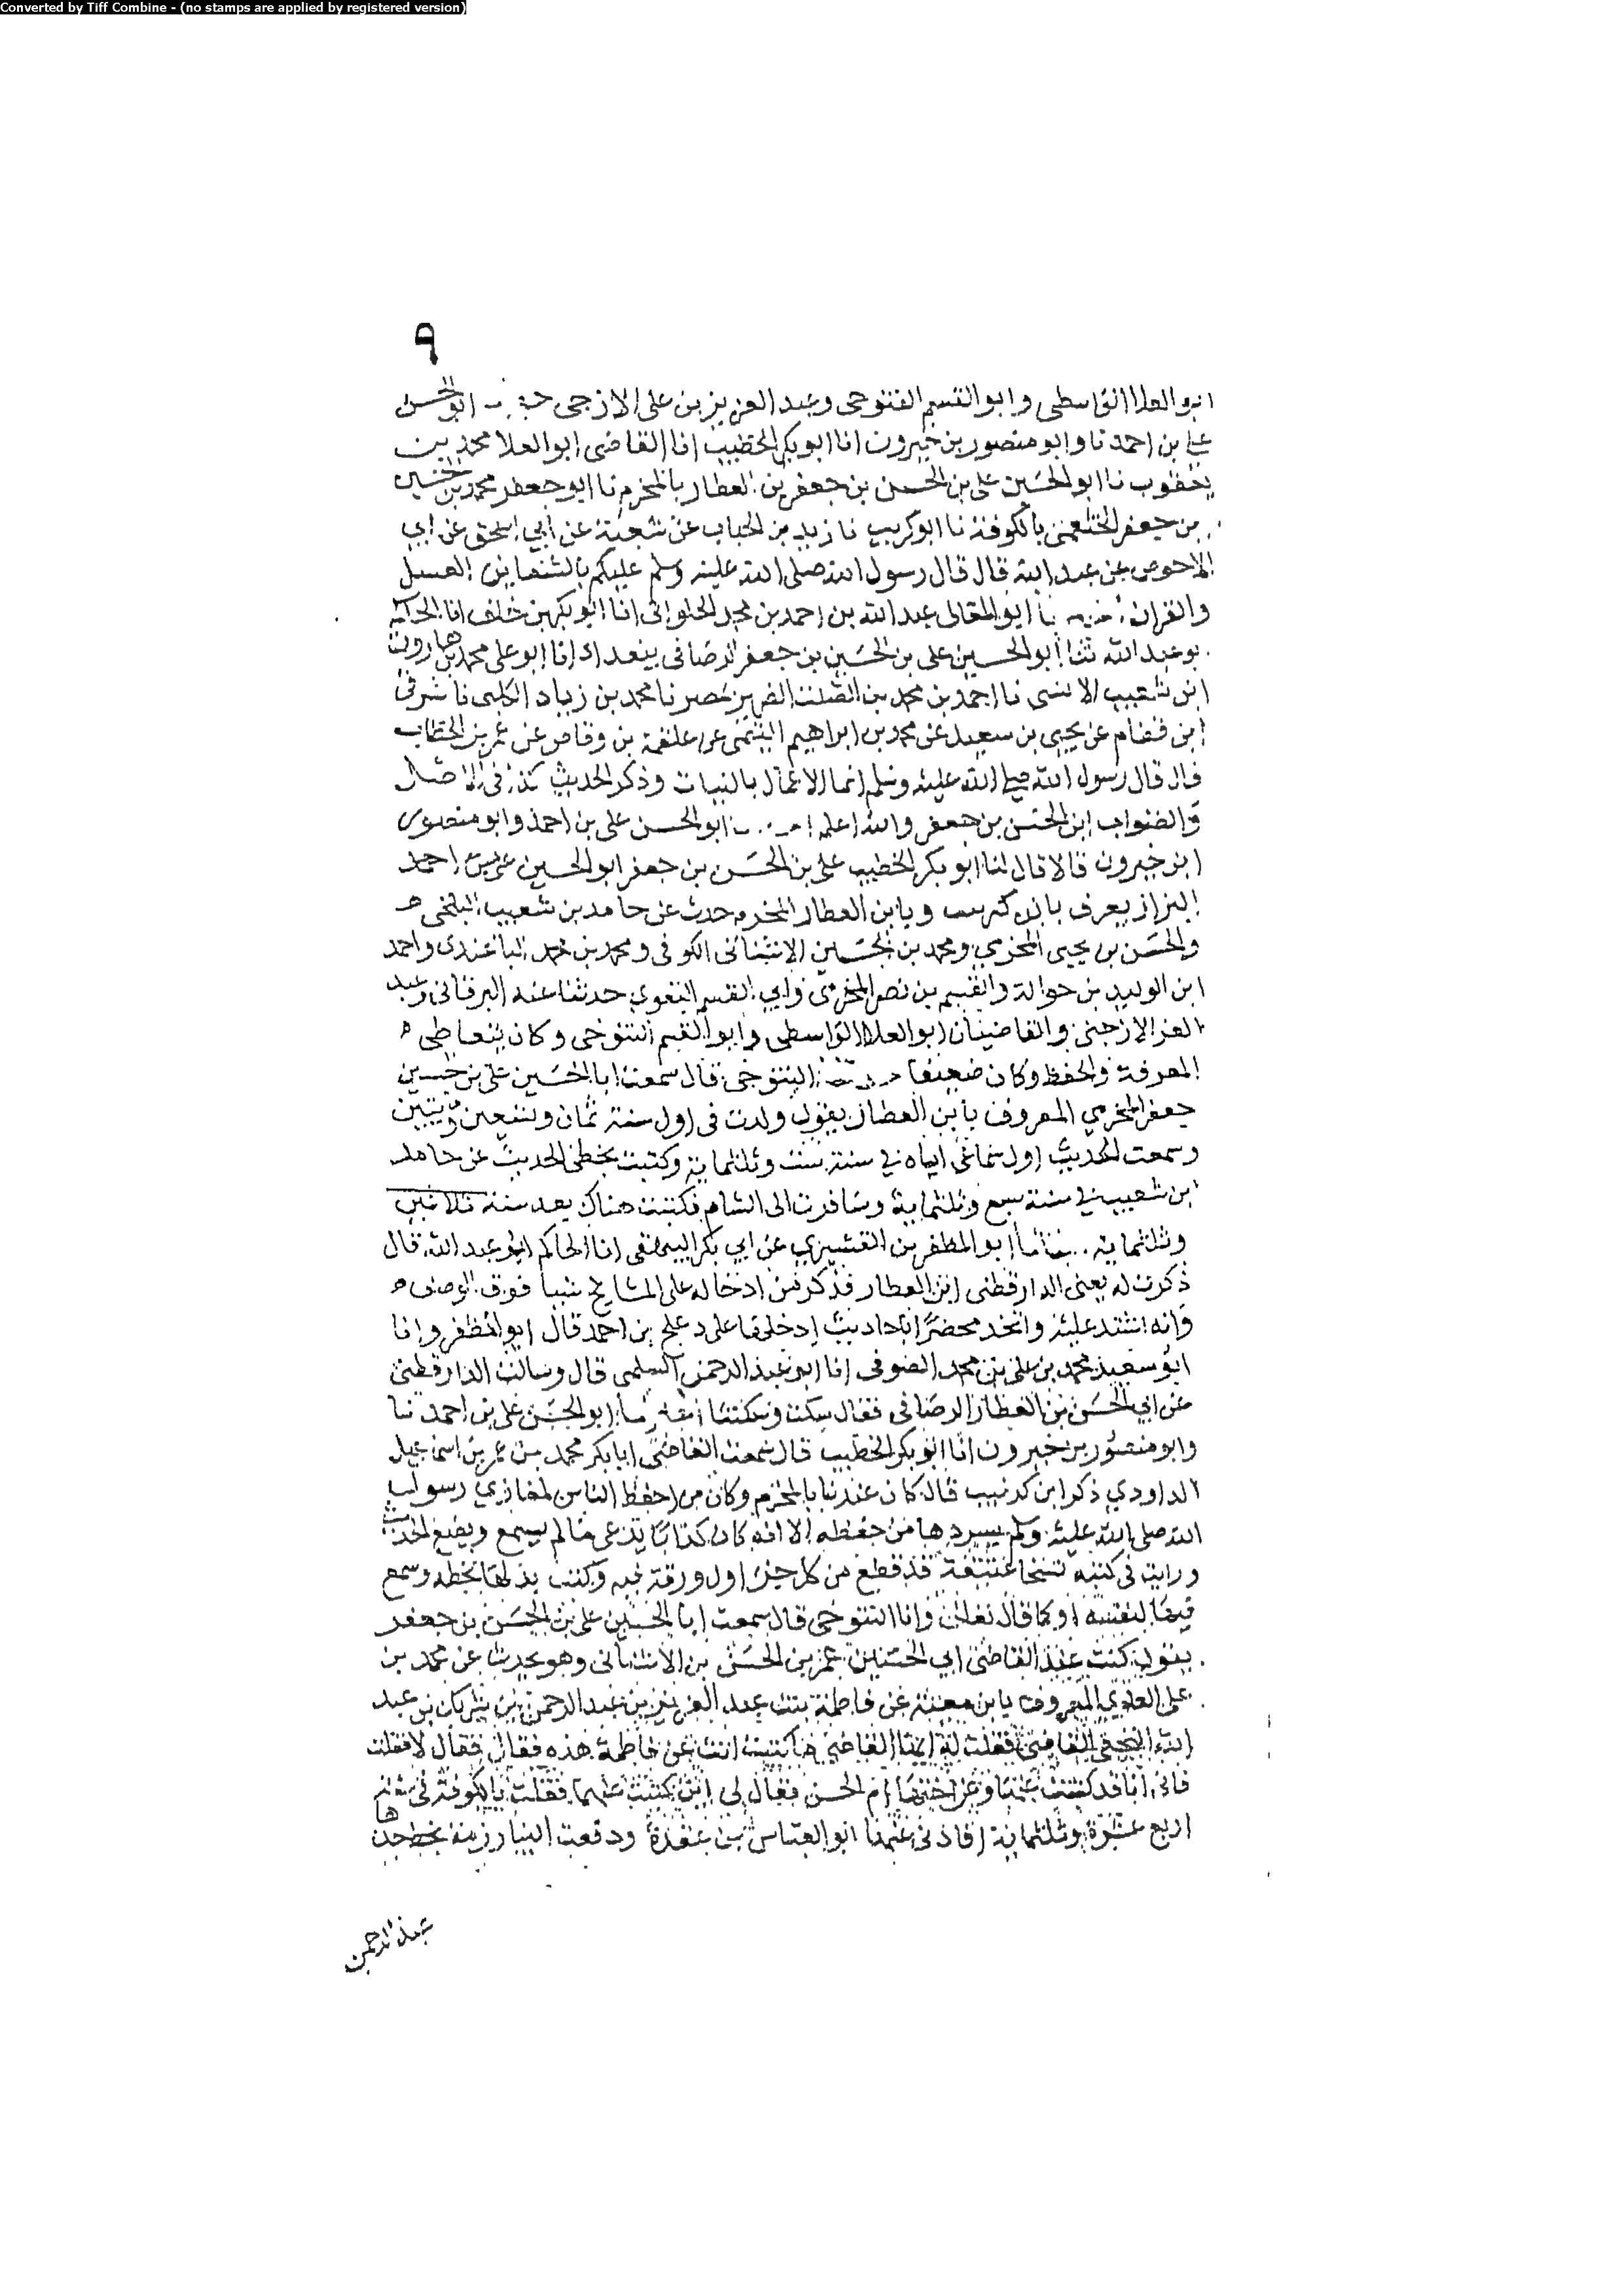 Converted by Tiff Combine - (no stamps are applied by registered version)
٩
ابو العلا الواسطى وابو القسم التنوخى وعبد العزيز بن على الازجى ابو الحسن
على بن احمد نا وابو منصور بن خيرون انا ابو بكر الخطيب انا القاضى ابو العلا محمد بن
يعقوب نا ابو الحسين على بن الحسن بن جعفر بن العطار بالمخرم نا ابو جعفر محمد بن حسين
بن جعفر الخثعمى بالكوفة نا ابو كريب نا زيد بن الحباب عن شعبة عن ابي اسحق عن ابي
الاحوص عن عبد الله قال قال رسول الله صلى الله عليه وسلم عليكم بالشفاين العسل
والقران نا ابو المعالى عبد الله بن احمد بن محمد الحلوانى انا ابو بكر بن خلف انا الحاكم
بو عبد الله ثنا ابو الحسين على بن الحسين بن جعفر الرصافى ببغداد انا ابو على محمد بن هارون
ابن شعيب الا نا احمد بن محمد بن الصلت بمصر نا محمد بن زياد الكلبى نا شرقى
ابن قطام عن يحيى بن سعيد عن محمد بن ابراهيم التيمى عن علقمة بن وقاص عن عمر بن الخطاب
قال قال رسول الله صلى الله عليه وسلم انما الاعمال بالنيات وذكر الحديث كذا فى الاصل
والصواب ابن الحسن بن جعفر والله اعلم ابو الحسن على بن احمد وابو منصور
ابن خيرون قالا قال لنا ابو بكر الخطيب على بن الحسن بن جعفر ابو الحسين احمد
البزاز يعرف بابن كرنيب وبابن العطار المخرمى حدث عن حامد بن شعيب البلخى
والحسن بن يحيى المخرمي ومحمد بن الحسين الاشنانى الكوفى ومحمد بن محمد الباغندى واحمد
ابن الوليد بن حوالة والقسم بن نصر المخرمى وابي القسم البغوي حدثنا عنه البرقانى وعبد
العز الازجى والقاضيان ابو العلا الواسطى وابو القسم التنوخى وكان يتعاطى
المعرفة والحفظ وكان ضعيفا التنوخى قال سمعت ابا الحسين على بن حسين
جعفر المخرمي المعروف بابن العطار يقول ولدت فى اول سنة ثمان وتسعين وميتين
وسمعت الحديث اول سماعى اياه في سنة ست وثلثماية وكتبت بخطى الحديث عن حامد
ابن شعيب في سنة سبع وثلثماية وسافرت الى الشام فكتبت هناك بعد سنة ثلاثين
وثلثماية ابو المظفر بن القشيري عن ابي بكر البيهقى انا الحاكم ابو عبد الله قال
ذكرت له يعنى الدارقطنى ابن العطار فذكر من ادخاله على المشايخ شيا فوق الوصف
وانه اشتد عليه واتخذ محضرا باحاديث ادخلها على دعلج بن احمد قال ابو المظفر وانا
ابو سعيد محمد بن على بن محمد الصوفى انا ابو عبد الرحمن السلمى قال وسالت الدارقطنى
عن ابي الحسن بن العطار الرصافى فقال سكت وسكتنا ابو الحسن على بن احمد نا
وابو منصور بن خيرون انا ابو بكر الخطيب قال سمعت القاضى ابا بكر محمد بن عمر بن اسماعيل
الداودي ذكر ابن كرنيب قال كان عندنا بالمخرم وكان من احفظ الناس لمغازي رسول
الله صلى الله عليه وسلم يسردها من حفظه الا انه كان كذابا يدعى ما لم يسمع ويضع الحديث
ورايت فى كتبه نسخا عتيقة قد قطع من كل جزء اول ورقة فيه وكتب بدلها بخطه وسمع
فيها لنفسه او كما قال نعلت وانا التنوخى قال سمعت ابا الحسين على بن الحسن بن جعفر
يقول كنت عند القاضى ابي الحسين عمر بن الحسن بن الاشنانى وهو يحدث عن محمد بن
على العلوي المعروف بابن معية عن فاطمة بنت عبد العزيز بن عبد الرحمن بن شريك بن عبد
الله النخعى القاضى فقلت له ايها القاضى ما كتبت انت عن فاطمة هذه فقال فقال لا فقلت
فانى انا قد كتبت عنها وعن اختها ام الحسن فقال لى اين كتبت عنهما فقلت بالكوفة فى سنة
اربع عشرة وثلثماية افادنى عنهما ابو العباس بن عقدة ودفعت الينا رزمة بخط جدها
عبد الرحمن